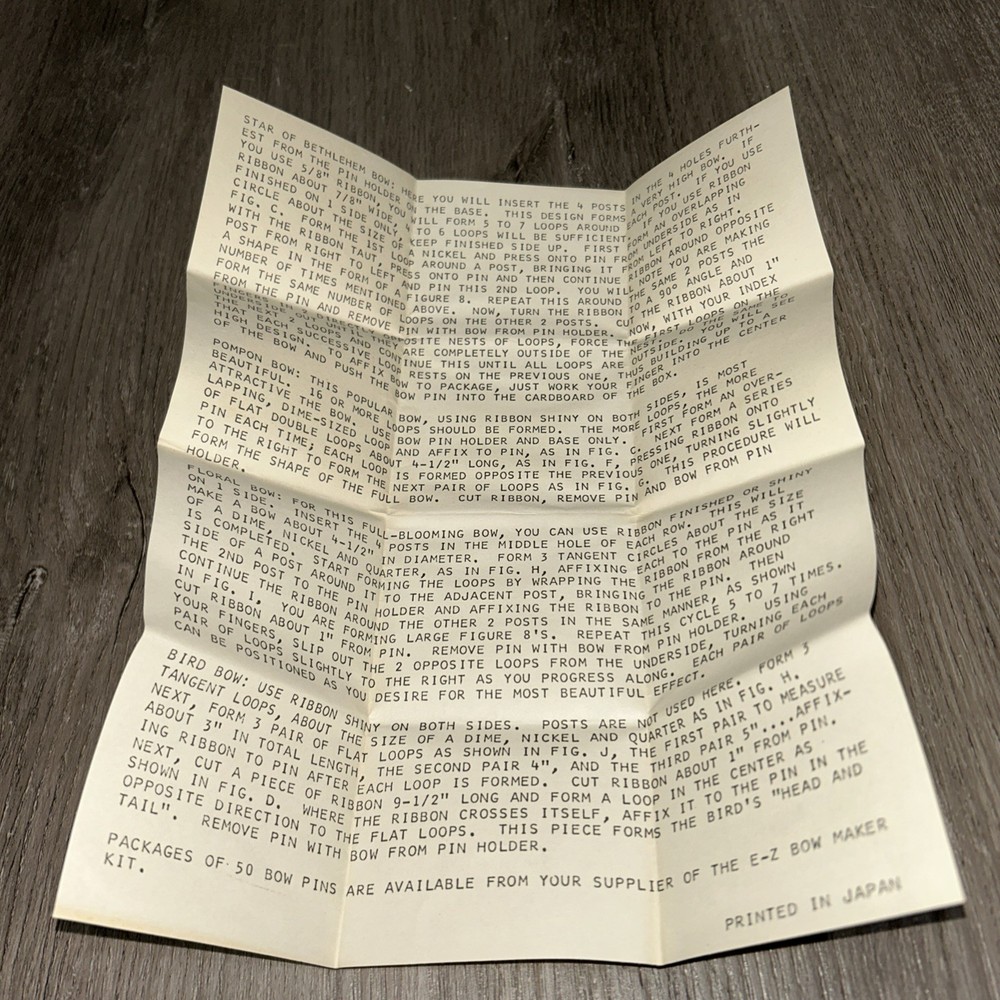 STAR OF BETHLEHEM BOW: HERE YOU WILL INSERT THE 4 POSTS IN THE 4 HOLES FURTH-
EST FROM THE PIN HOLDER ON THE BASE. THIS DESIGN FORMS A VERY HIGH BOW. IF
YOU USE 5/8" RIBBON, YOU WILL FORM 5 TO 7 LOOPS AROUND EACH POST. IF YOU USE
RIBBON ABOUT 7/8" WIDE, 5 TO 6 LOOPS WILL BE SUFFICIENT. IF YOU USE RIBBON
FINISHED ON 1 SIDE ONLY, KEEP FINISHED SIDE UP. FIRST FORM AN OVERLAPPING
CIRCLE ABOUT THE SIZE OF A NICKEL AND PRESS ONTO PIN FROM UNDERSIDE AS IN
FIG. C. FORM THE 1ST LOOP AROUND A POST, BRINGING IT FROM LEFT TO RIGHT.
WITH THE RIBBON TAUT, PRESS ONTO PIN AND THEN CONTINUE RIBBON AROUND OPPOSITE
POST FROM RIGHT TO LEFT AND PIN THIS 2ND LOOP. YOU WILL NOTE YOU ARE MAKING
A SHAPE IN THE FORM OF A FIGURE 8. REPEAT THIS AROUND THE SAME 2 POSTS THE
NUMBER OF TIMES MENTIONED ABOVE. NOW, TURN THE RIBBON TO A 90° ANGLE AND
FORM THE SAME NUMBER OF LOOPS ON THE OTHER 2 POSTS. CUT THE RIBBON ABOUT 1"
FROM THE PIN AND REMOVE PIN WITH BOW FROM PIN HOLDER. NOW, WITH YOUR INDEX
OPPOSITE NESTS OF LOOPS, FORCE THE FIRST LOOPS ON THE
UNDERSIDE OUT UNTIL THEY ARE COMPLETELY OUTSIDE OF THE NEST. DO THE SAME TO
THE NEXT 2 LOOPS AND CONTINUE THIS UNTIL ALL LOOPS ARE OUTSIDE. YOU WILL SEE
THAT EACH SUCCESSIVE LOOP RESTS ON THE PREVIOUS ONE, THUS BUILDING UP TO A
HIGH DESIGN. TO AFFIX BOW TO PACKAGE, JUST WORK YOUR FINGER INTO THE CENTER
OF THE BOW AND PUSH THE BOW PIN INTO THE CARDBOARD OF THE BOX.
POMPON BOW: THIS POPULAR BOW, USING RIBBON SHINY ON BOTH SIDES, IS MOST
BEAUTIFUL. 16 OR MORE LOOPS SHOULD BE FORMED. THE MORE LOOPS, THE MORE
ATTRACTIVE THE BOW. USE BOW PIN HOLDER AND BASE ONLY. FIRST FORM AN OVER-
LAPPING, DIME-SIZED LOOP AND AFFIX TO PIN, AS IN FIG. C. NEXT FORM A SERIES
OF FLAT, DOUBLE LOOPS ABOUT 4-1/2" LONG, AS IN FIG. F, PRESSING RIBBON ONTO
PIN EACH TIME; EACH LOOP IS FORMED OPPOSITE THE PREVIOUS ONE, TURNING SLIGHTLY
TO THE RIGHT TO FORM THE NEXT PAIR OF LOOPS AS IN FIG. G. THIS PROCEDURE WILL
FORM THE SHAPE OF THE FULL BOW. CUT RIBBON, REMOVE PIN AND BOW FROM PIN
HOLDER.
FLORAL BOW: FOR THIS FULL-BLOOMING BOW, YOU CAN USE RIBBON FINISHED OR SHINY
ON 1 SIDE. INSERT THE 4 POSTS IN THE MIDDLE HOLE OF EACH ROW. THIS WILL
MAKE A BOW ABOUT 4-1/2" IN DIAMETER. FORM 3 TANGENT CIRCLES ABOUT THE SIZE
OF A DIME, NICKEL AND QUARTER, AS IN FIG. H, AFFIXING EACH TO THE PIN AS IT
IS COMPLETED. START FORMING THE LOOPS BY WRAPPING THE RIBBON FROM THE RIGHT
SIDE OF A POST AROUND IT TO THE ADJACENT POST, BRINGING THE RIBBON AROUND
THE 2ND POST TO THE PIN HOLDER AND AFFIXING THE RIBBON TO THE PIN. THEN
CONTINUE THE RIBBON AROUND THE OTHER 2 POSTS IN THE SAME MANNER, AS SHOWN
IN FIG. I, YOU ARE FORMING LARGE FIGURE 8'S. REPEAT THIS CYCLE 5 TO 7 TIMES.
CUT RIBBON ABOUT 1" FROM PIN. REMOVE PIN WITH BOW FROM PIN HOLDER. USING
YOUR FINGERS, SLIP OUT THE 2 OPPOSITE LOOPS FROM THE UNDERSIDE, TURNING EACH
PAIR OF LOOPS SLIGHTLY TO THE RIGHT AS YOU PROGRESS ALONG. EACH PAIR OF LOOPS
CAN BE POSITIONED AS YOU DESIRE FOR THE MOST BEAUTIFUL EFFECT.
BIRD BOW: USE RIBBON SHINY ON BOTH SIDES. POSTS ARE NOT USED HERE. FORM 3
TANGENT LOOPS, ABOUT THE SIZE OF A DIME, NICKEL AND QUARTER AS IN FIG. H.
NEXT, FORM 3 PAIR OF FLAT LOOPS AS SHOWN IN FIG. J, THE FIRST PAIR TO MEASURE
ABOUT 3" IN TOTAL LENGTH, THE SECOND PAIR 4", AND THE THIRD PAIR 5"....AFFIX-
ING RIBBON TO PIN AFTER EACH LOOP IS FORMED. CUT RIBBON ABOUT 1" FROM PIN.
NEXT, CUT A PIECE OF RIBBON 9-1/2" LONG AND FORM A LOOP IN THE CENTER AS
SHOWN IN FIG. D. WHERE THE RIBBON CROSSES ITSELF, AFFIX IT TO THE PIN IN THE
OPPOSITE DIRECTION TO THE FLAT LOOPS. THIS PIECE FORMS THE BIRD'S "HEAD AND
TAIL". REMOVE PIN WITH BOW FROM PIN HOLDER.
PACKAGES OF 50 BOW PINS ARE AVAILABLE FROM YOUR SUPPLIER OF THE E-Z BOW MAKER
KIT.
PRINTED IN JAPAN